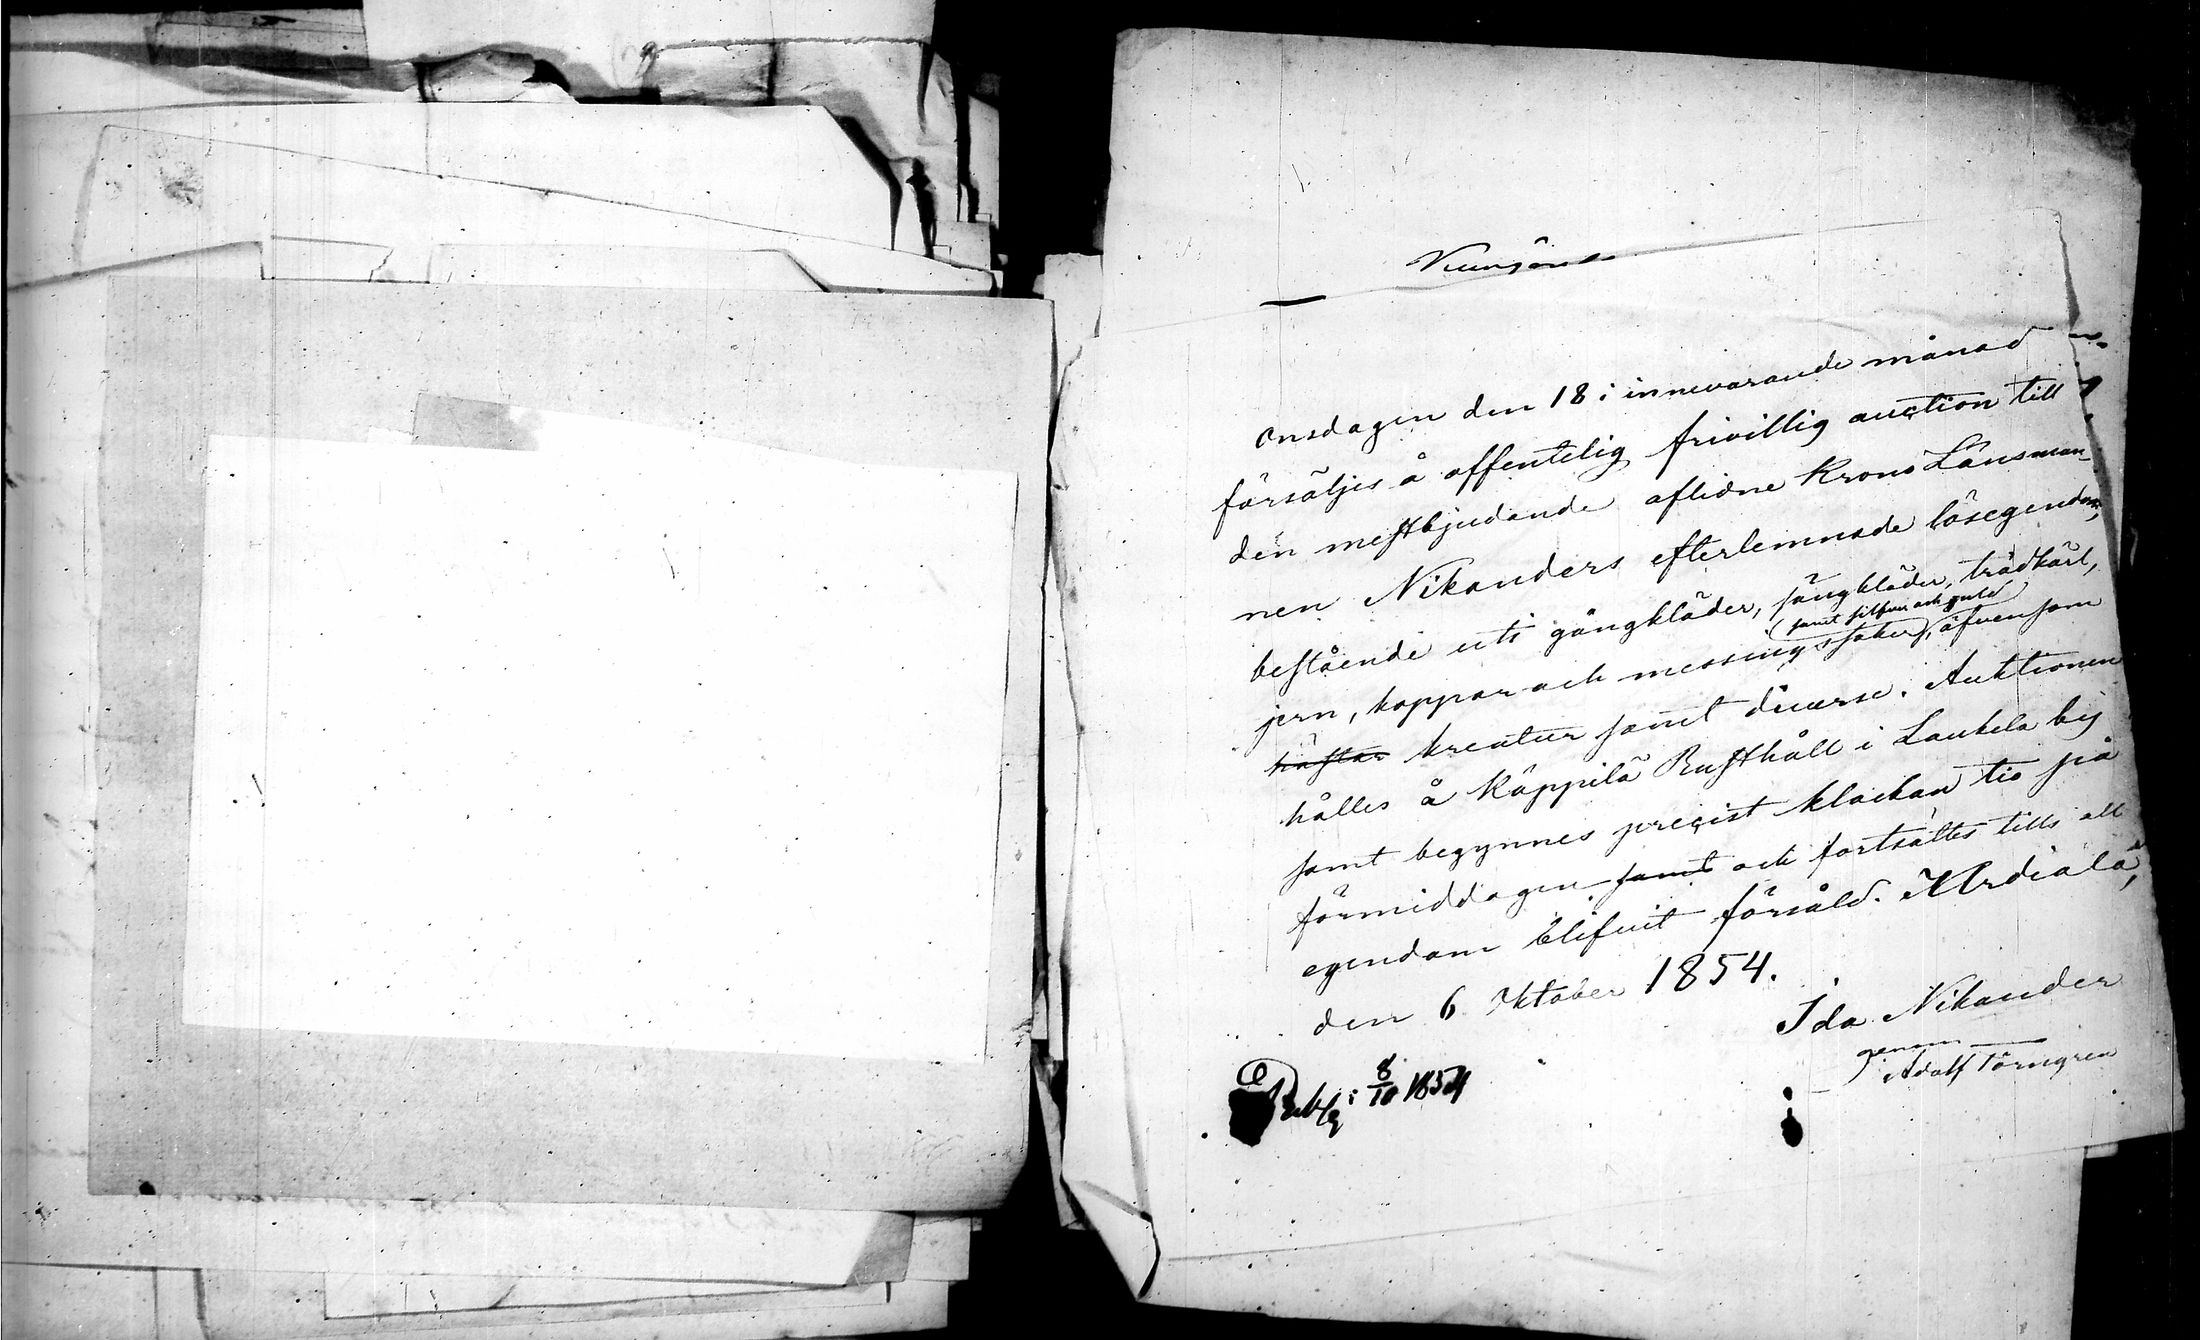 Kungörelse
Onsdagen den 18 i innevarande månad
försäljes å offentelig frivillig auction till
den mestbjudande aflidne Krono Länsman-
nen Nikanders efterlemnade lösegendom,
bestående uti gångkläder, sängkläder, trädkärl,
samt silfver och guld
jern, koppar och messingssaker, äfvensom
hästar kreatur samt diverse. Auktionen
hålles å Käppilä Rusthåll i Laukela by
samt begynnes precist klockan tio på
förmiddagen samt och fortsättes tills all
egendom blifvit försåld. Urdiala,
den 6 Oktober 1854.
Ida Nikander
genom
Adolf Törngren
8/10 1854